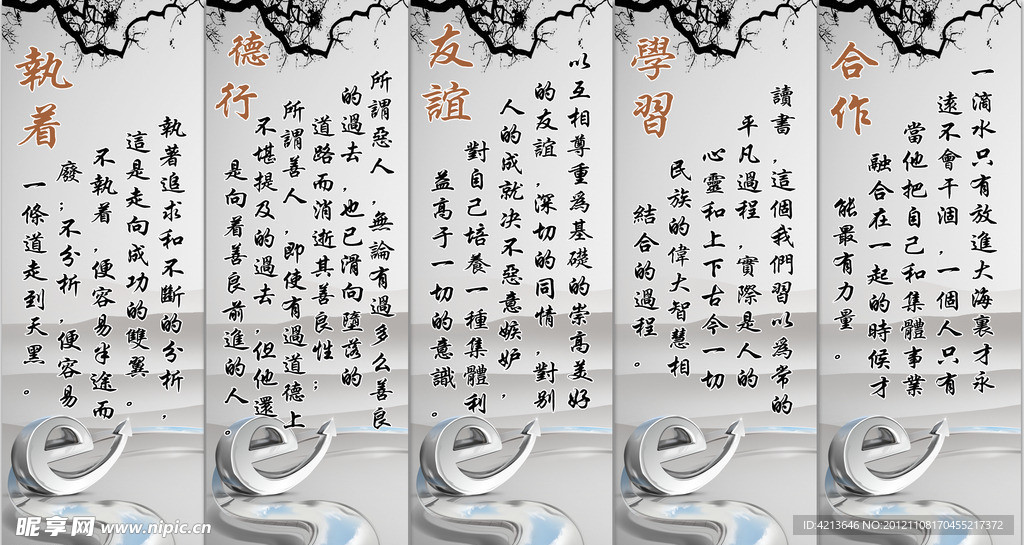 執着
執著追求和不斷的分析，
這是走向成功的雙翼。
不執着，便容易半途而
廢；不分析，便容易
一條道走到天黑。
德行
所謂惡人，無論有過多么善良
的過去，也已滑向墮落的
道路而消逝其善良性；
所謂善人，即使有過道德上
不堪提及的過去，但他還
是向着善良前進的人。
友誼
以互相尊重爲基礎的崇高美好
的友誼，深切的同情，對别
人的成就决不惡意嫉妒，
對自己培養一種集體利
益高于一切的意識。
學習
讀書，這個我們習以爲常的
平凡過程，實際是人的
心靈和上下古今一切
民族的偉大智慧相
結合的過程。
合作
一滴水只有放進大海裏才永
遠不會干涸，一個人只有
當他把自己和集體事業
融合在一起的時候才
能最有力量。
昵享网 www.nipic.cn
ID:4213646 NO:20121108170455217372